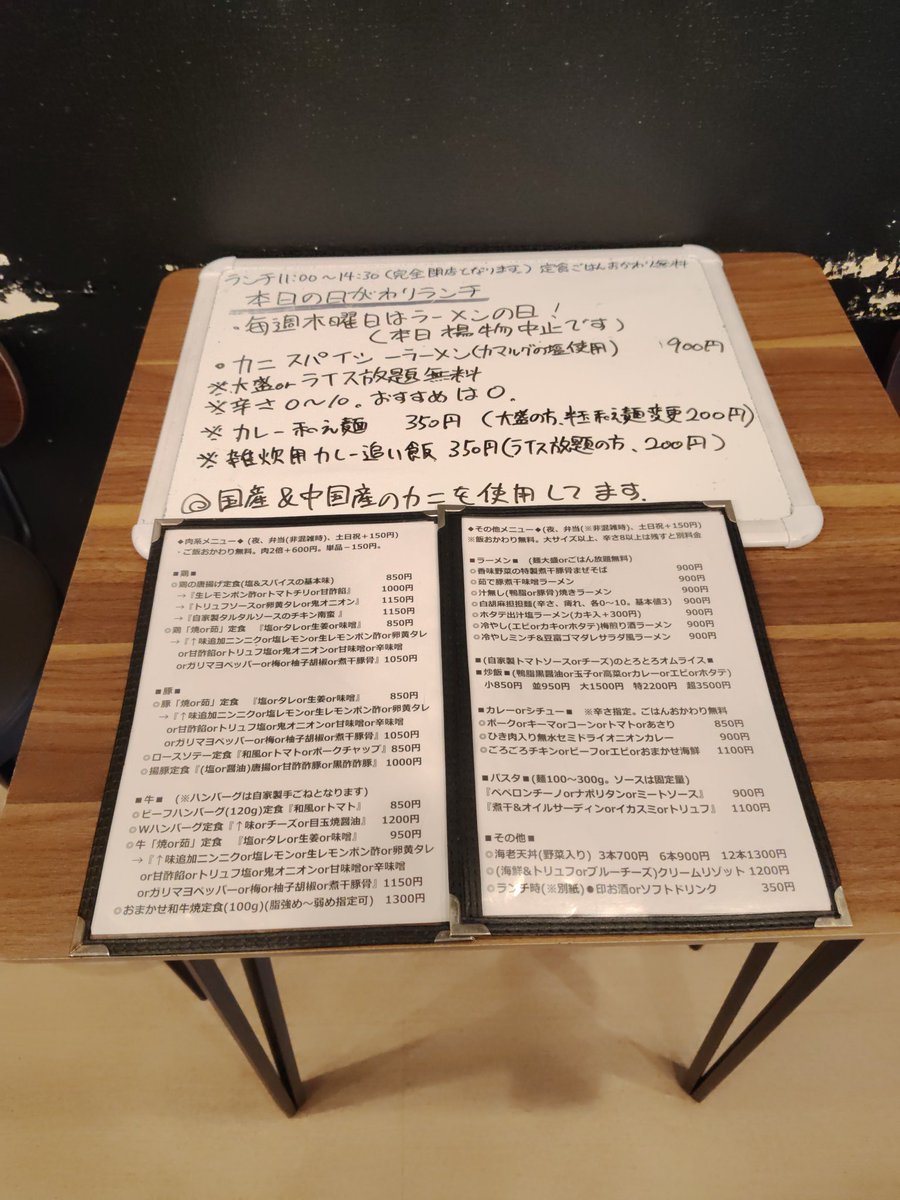 ランチ11:00〜14:30(完全閉店となります) 定食ごはんおかわり無料
本日の日がわりランチ
・毎週木曜日はラーメンの日!
(本日揚物中止です)
○カニスパイシーラーメン(カマルグの塩使用) 900円
※大盛orライス放題無料
※辛さ0〜10。おすすめは0。
※カレー和え麺 350円 (大盛の方、半玉和え麺変更200円)
※雑炊用カレー追い飯 350円(ライス放題の方、200円)
◎国産&中国産のカニを使用してます.
◆肉系メニュー◆(夜、弁当(※非混雑時)、土日祝+150円)
・ご飯おかわり無料。肉2倍+600円。単品−150円。
■鶏■
◎鶏の唐揚げ定食(塩&スパイスの基本味) 850円
→『生レモンポン酢orトマトチリor甘酢餡』 1000円
→『トリュフソースor卵黄タレor鬼オニオン』 1150円
→『自家製タルタルソースのチキン南蛮 』 1150円
◎鶏「焼or茹」定食 『塩orタレor生姜or味噌』 850円
→『↑味追加ニンニクor塩レモンor生レモンポン酢or卵黄タレ
or甘酢餡orトリュフ塩or鬼オニオンor甘味噌or辛味噌
orガリマヨペッパーor梅or柚子胡椒or煮干豚骨』1050円
■豚■
◎豚「焼or茹」定食 『塩orタレor生姜or味噌』 850円
→『↑味追加ニンニクor塩レモンor生レモンポン酢or卵黄タレ
or甘酢餡orトリュフ塩or鬼オニオンor甘味噌or辛味噌
orガリマヨペッパーor梅or柚子胡椒or煮干豚骨』1050円
◎ロースソテー定食『和風orトマトorポークチャップ』850円
◎揚豚定食『(塩or醤油)唐揚or甘酢酢豚or黒酢酢豚』1000円
■牛■ (※ハンバーグは自家製手ごねとなります)
◎ビーフハンバーグ(120g)定食『和風orトマト』 850円
◎Wハンバーグ定食『↑味orチーズor目玉焼醤油』 1200円
◎牛「焼or茹」定食 『塩orタレor生姜or味噌』 950円
→『↑味追加ニンニクor塩レモンor生レモンポン酢or卵黄タレ
or甘酢餡orトリュフ塩or鬼オニオンor甘味噌or辛味噌
orガリマヨペッパーor梅or柚子胡椒or煮干豚骨』1150円
◎おまかせ和牛焼定食(100g)(脂強め〜弱め指定可) 1300円
◆その他メニュー◆(夜、弁当(※非混雑時)、土日祝+150円)
※飯おかわり無料。大サイズ以上、辛さ8以上は残すと別料金
■ラーメン■ (麺大盛orごはん放題無料)
◎香味野菜の特製煮干豚骨まぜそば 900円
◎茹で豚煮干味噌ラーメン 900円
◎汁無し(鴨脂or豚骨)焼きラーメン 900円
◎白胡麻担担麺(辛さ、痺れ、各0〜10。基本値3) 900円
◎ホタテ出汁塩ラーメン(カキ入+300円) 900円
◎冷やし(エビorカキorホタテ)梅煎り酒ラーメン 900円
◎冷やしミンチ&豆富ゴマダレサラダ風ラーメン 900円
■(自家製トマトソースorチーズ)のとろとろオムライス■
■炒飯■(鴨脂黒醤油or玉子or高菜orカレーorエビorホタテ)
小850円 並950円 大1500円 特2200円 超3500円
■カレーorシチュー■ ※辛さ指定。ごはんおかわり無料
◎ポークorキーマorコーンorトマトorあさり 850円
◎ひき肉入り無水セミドライオニオンカレー 900円
◎ごろごろチキンorビーフorエビorおまかせ海鮮 1100円
■パスタ■(麺100〜300g。ソースは固定量)
『ペペロンチーノorナポリタンorミートソース』 900円
『煮干&オイルサーディンorイカスミorトリュフ』 1100円
■その他■
◎海老天丼(野菜入り) 3本700円 6本900円 12本1300円
◎(海鮮&トリュフorブルーチーズ)クリームリゾット 1200円
◎ランチ時(※別紙)●印お酒orソフトドリンク 350円